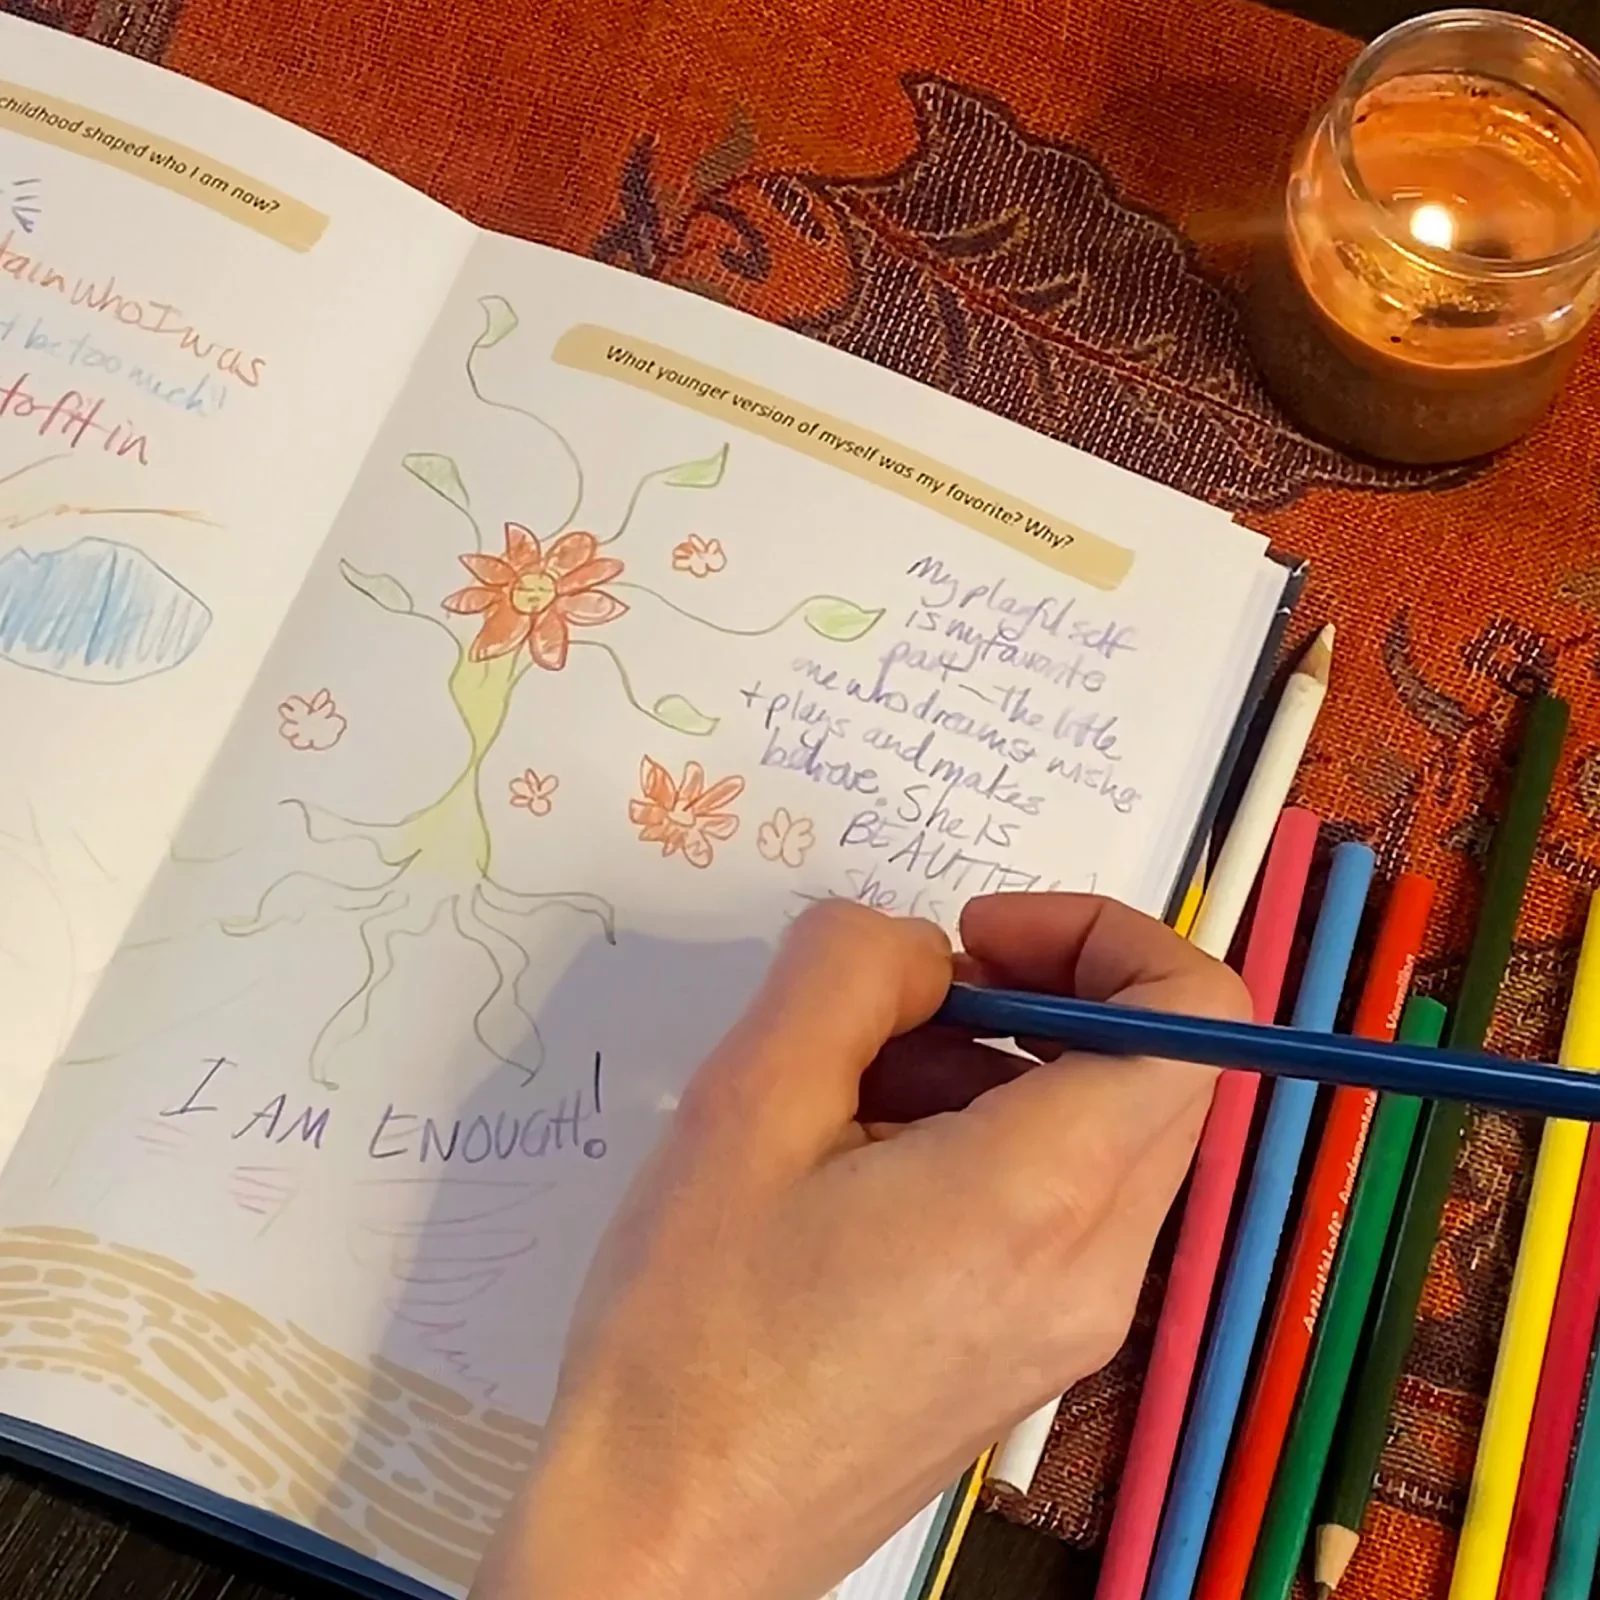 childhood shaped who I am now?
tain who I was
t be too much"
to fit in
What younger version of myself was my favorite? Why?
My playful self
is my favorite
part – The little
one who dreams & wishes
+ plays and makes
believe. She Is
BEAUTIFUL!
She Is
I AM ENOUGH!
Vermilion
Artist's Loft